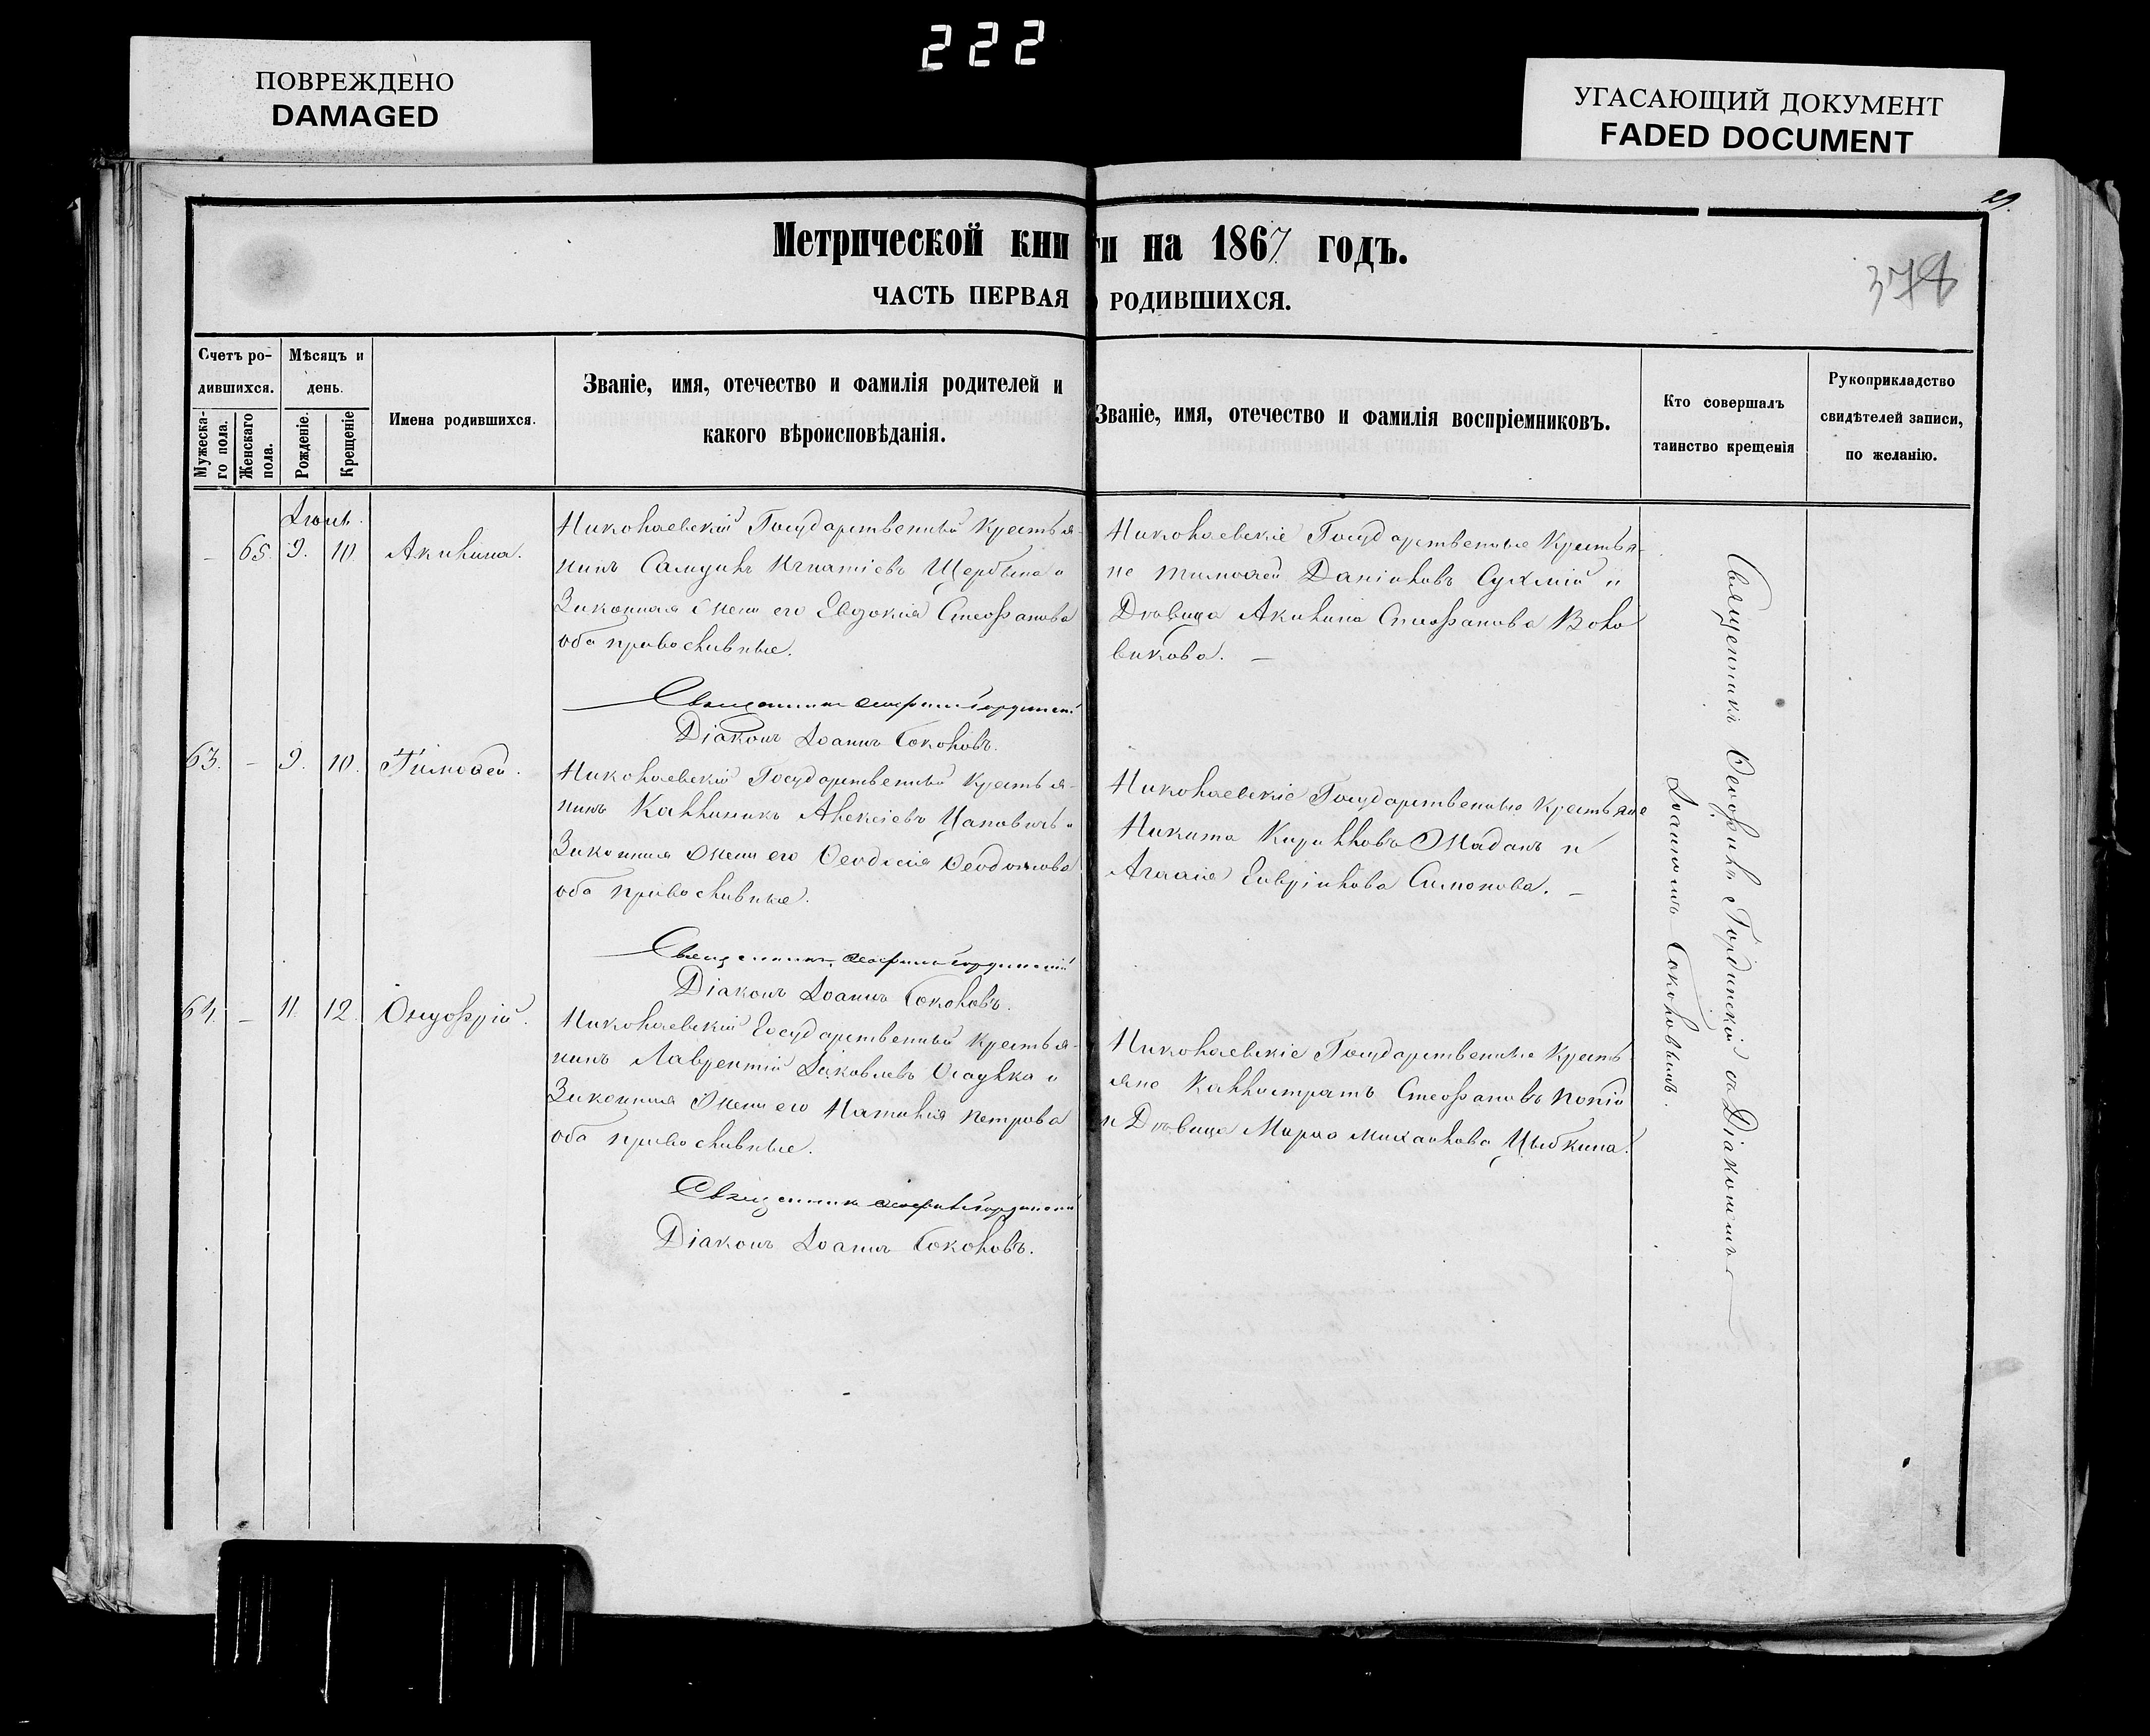 222
ПОВРЕЖДЕНО
DAMAGED
УГАСАЮЩИЙ ДОКУМЕНТ
FADED DOCUMENT
29.
378
Метрической книги на 1867 годъ.
ЧАСТЬ ПЕРВАЯ О РОДИВШИХСЯ.
Счетъ ро-
дившихся.
Мужеска-
го пола.
Женскаго
пола.
Мѣсяцъ и
день.
Рожденіе.
Крещеніе
Имена родившихся.
Званіе, имя, отечество и фамилія родителей и
какого вѣроисповѣданія.
Званіе, имя, отечество и фамилія воспріемниковъ.
Кто совершалъ
таинство крещенія
Рукоприкладство
свидѣтелей записи,
по желанію.
Іюнь.
- 65. 9. 10. Акилина.
Николаевскій Государственный Крестья-
нинъ Самуилъ Игнатіевъ Щербина и
Законная жена его Евдокія Стефанова
оба православные.
Священникъ Ѳеофилъ Гординскій
Діаконъ Іоаннъ Соколовъ.
Николаевскіе Государственные Крестья-
не Тимоѳей Даніиловъ Сухлій и
Дѣвица Акилина Стефанова Воло
викова. —
63. - 9. 10. Тимоѳей.
Николаевскій Государственный Крестья-
нинъ Каллиникъ Алексіевъ Цаповичъ и
Законная жена его Ѳеодосія Ѳеодотова
оба православные.
Священникъ Ѳеофилъ Гординскій
Діаконъ Іоаннъ Соколовъ.
Николаевскіе Государственные Крестьяне
Никита Кирилловъ Жаданъ и
Агаѳія Гавріилова Симонова. —
64. - 11. 12. Онуфрій.
Николаевскій Государственный Крестья-
нинъ Лаврентій Іаковлевъ Осадчка и
Законная жена его Наталія Петрова
оба православные.
Священникъ Ѳеофилъ Гординскій
Діаконъ Іоаннъ Соколовъ.
Николаевскіе Государственные Кресть
яне Каллистратъ Стефановъ Попій
и Дѣвица Марѳа Михаилова Цыбкина.
Священникъ Ѳеофилъ Гординскій съ Діакономъ
Іоанномъ Соколовымъ.